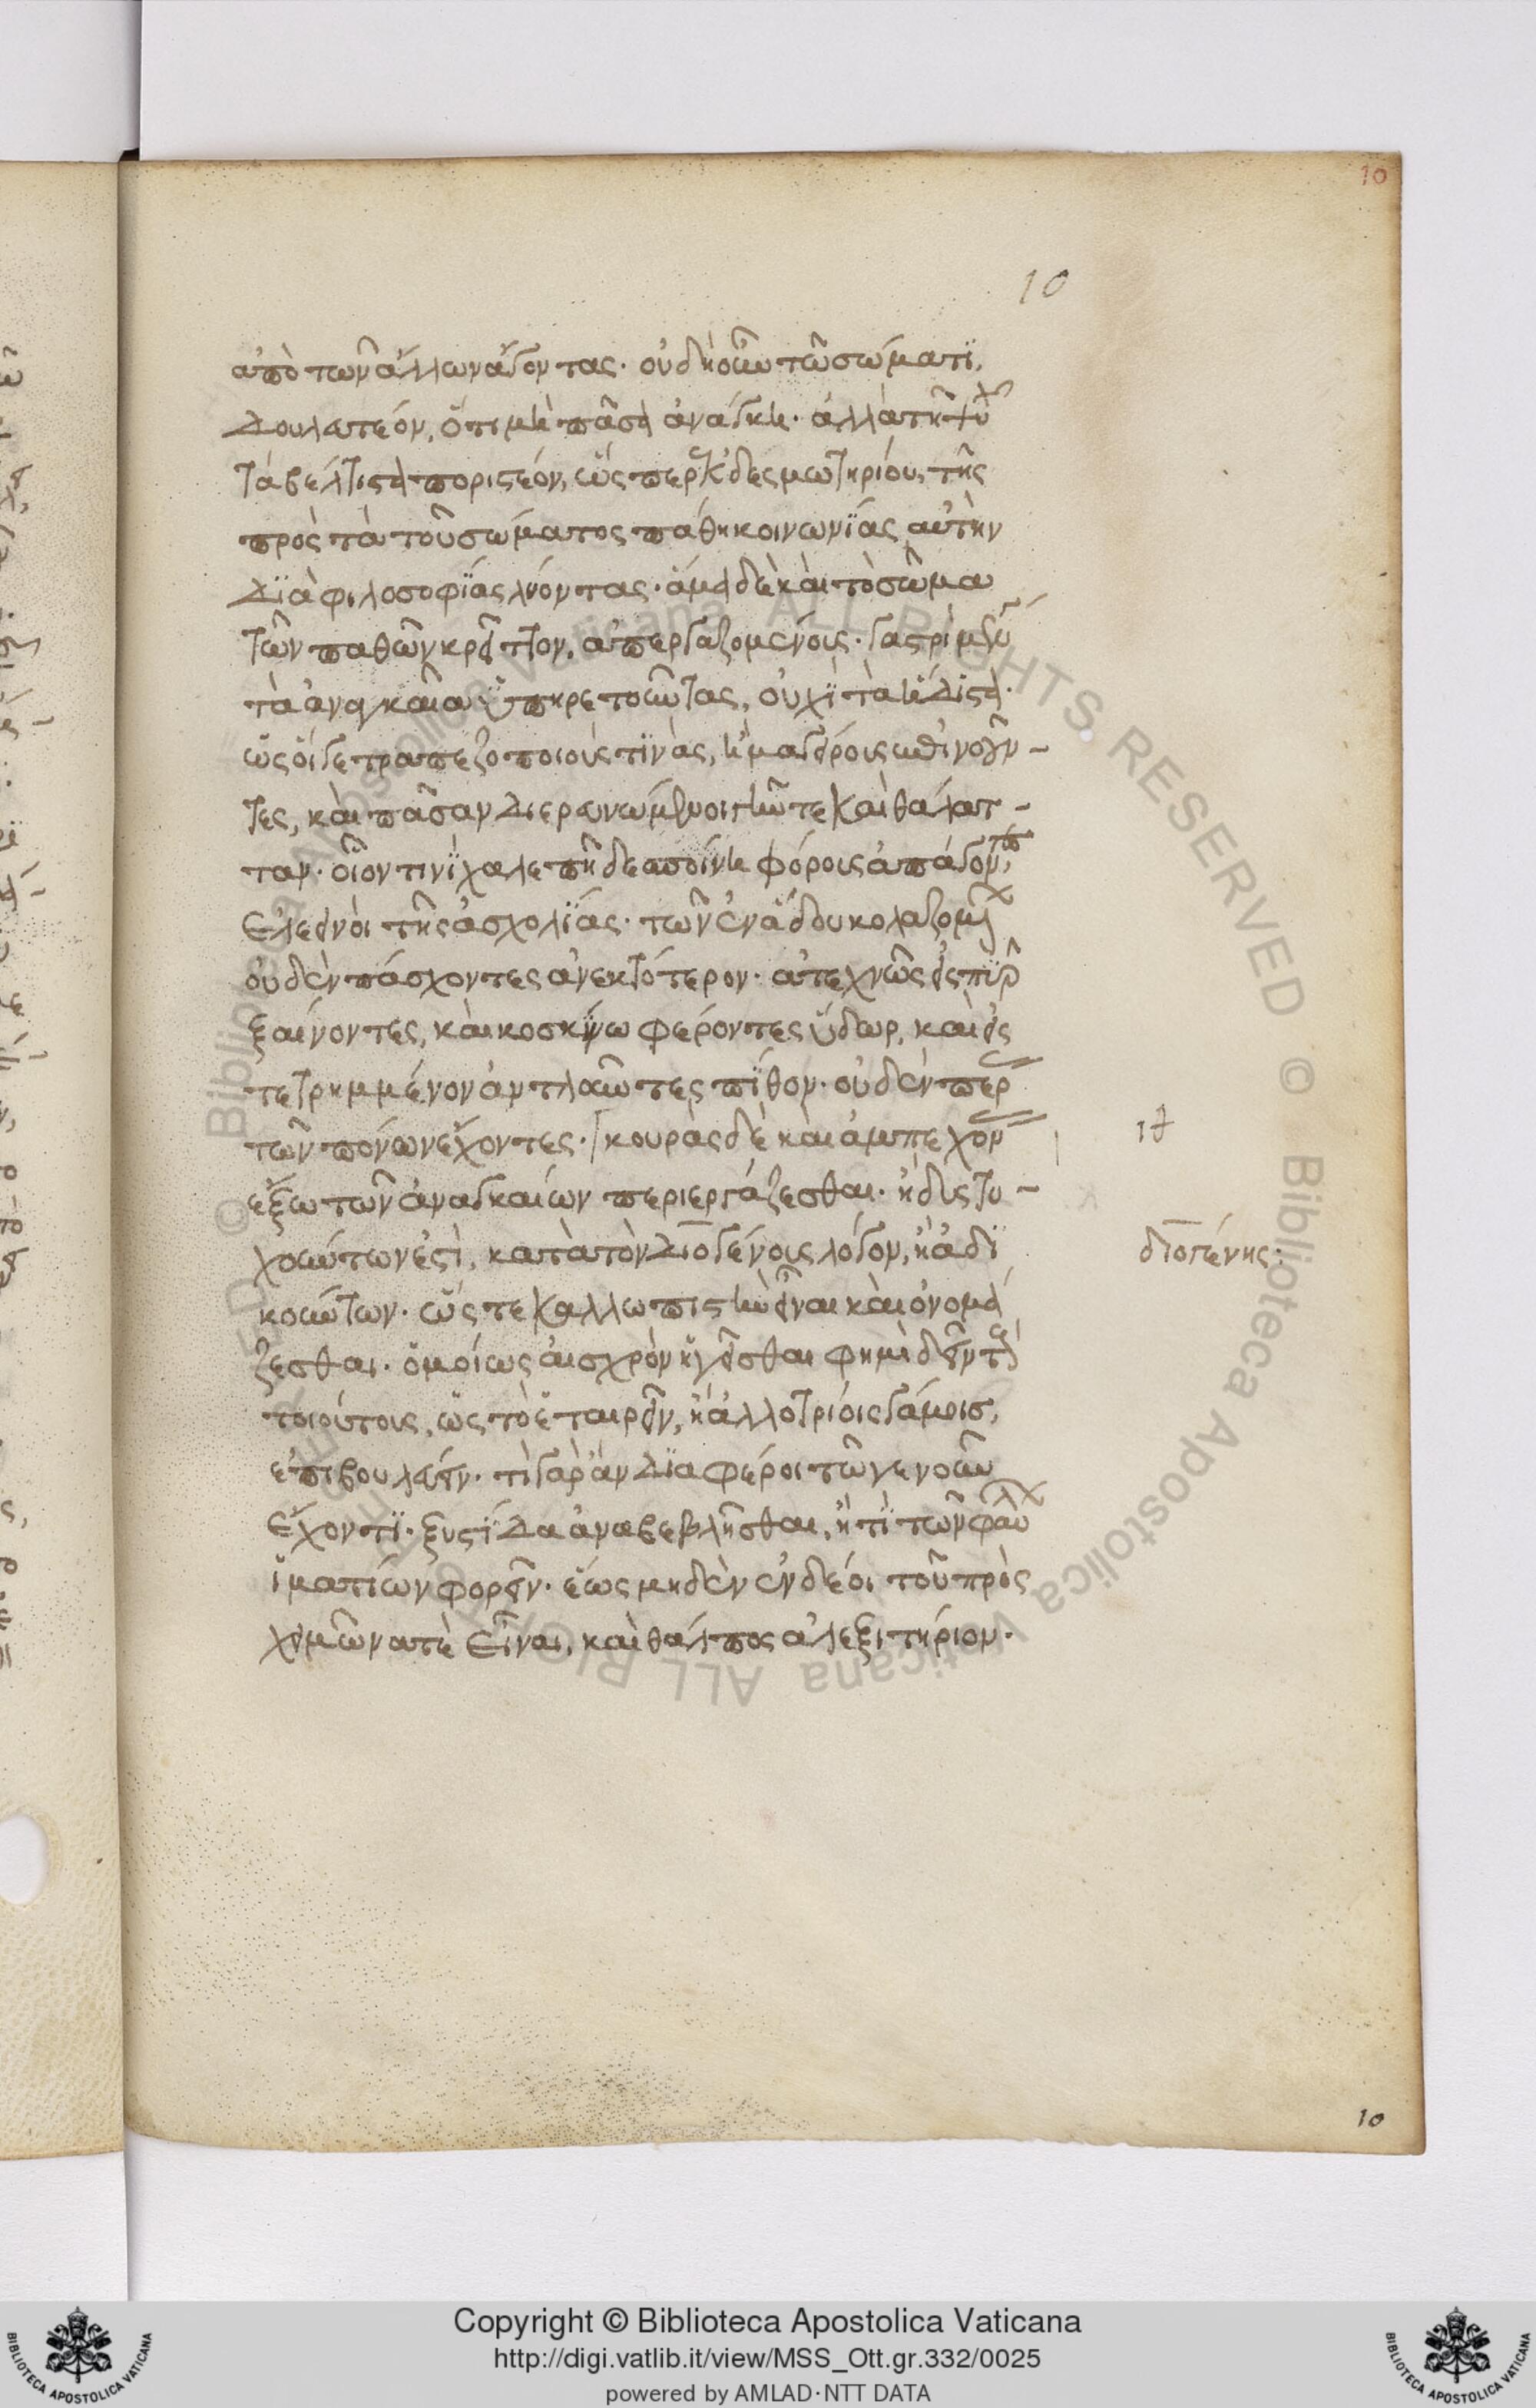 10
10
ἀπὸ τῶν ἄλλων ἄγοντας. οὐ δὴ οὖν τῶ σώματϊ,
δουλευτέον, ὅτι μὴ πᾶσα ἀνάγκη. ἀλλὰ τῆ ψυχ
τὰ βέλτιστα ποριστέον, ὥσπερ ἐκ δεσμωτηρίου, τῆς
πρὸς τὰ τοῦ σώματος πάθη κοινωνϊας αὐτὴν
δϊὰ φιλοσοφϊας λύοντας. ἅμα δὲ καὶ τὸ σῶμα
τῶν παθῶν κρεῖττον, ἀπεργαζομένοις. γαστρὶ μὲν
τὰ ἀναγκαῖα ὑπηρετοῦντας, οὐχϊ τὰ ἥδιστα.
ὡς οἵ γε τραπεζοποιούς τϊνὰς, ἢ μαγείροις ἐπινοοῦν-
τες, καὶ πᾶσαν διερευνώμενοι γῆν τε καὶ θάλατ-
ταν. οἷόν τινϊ χαλεπῆ δεσποίνη φόρους ἀπάγον,
ἐλεεινοὶ τῆς ἀσχολϊας. τῶν ἐν ἅδου κολαζομ
οὐδὲν πάσχοντες ἀνεκτότερον. ἀτεχνῶς εἰς πῦρ
ξαίνοντες, καὶ κοσκίνω φέροντες ὕδωρ, καὶ εἰς
τετρημμένον ἀντλοῦντες πϊθον. οὐδὲν περ
τῶν πόνων ἔχοντες. κουρὰς δὲ καὶ ἀμπεχον
ιθ
ἔξω τῶν ἀναγκαίων περιεργάζεσθαι. ἢ δυστυ-
χούντων ἐστὶ, κατὰ τὸν Διογένους λόγον, ἢ ἀδϊ
διογένης:
κούντων. ὥστε καλλωπιστὴν εἶναι καὶ ὀνομά
ζεσθαι. ὁμοίως αἰσχρὸν ἡγεῖσθαι φημὶ δεῖν τοῖ
τοιούτοις, ὡς τὸ ἑταιρεῖν, ἢ ἀλλοτρίοις γάμοις,
ἐπιβουλεύειν. τὶ γὰρ ἂν δϊαφέροι τῶ γε νοῦν
ἔχοντϊ. ξυστϊδα ἀναβεβλῆσθαι, ἤ τϊ τῶν φαύλ
ἱματίων φορεῖν. ἕως μηδὲν ἐνδέοι τοῦ πρὸς
χειμῶνα τὲ εἶναι, καὶ θάλπος ἀλεξιτήριον.
10
Copyright © Biblioteca Apostolica Vaticana
http://digi.vatlib.it/view/MSS_Ott.gr.332/0025
powered by AMLAD·NTT DATA